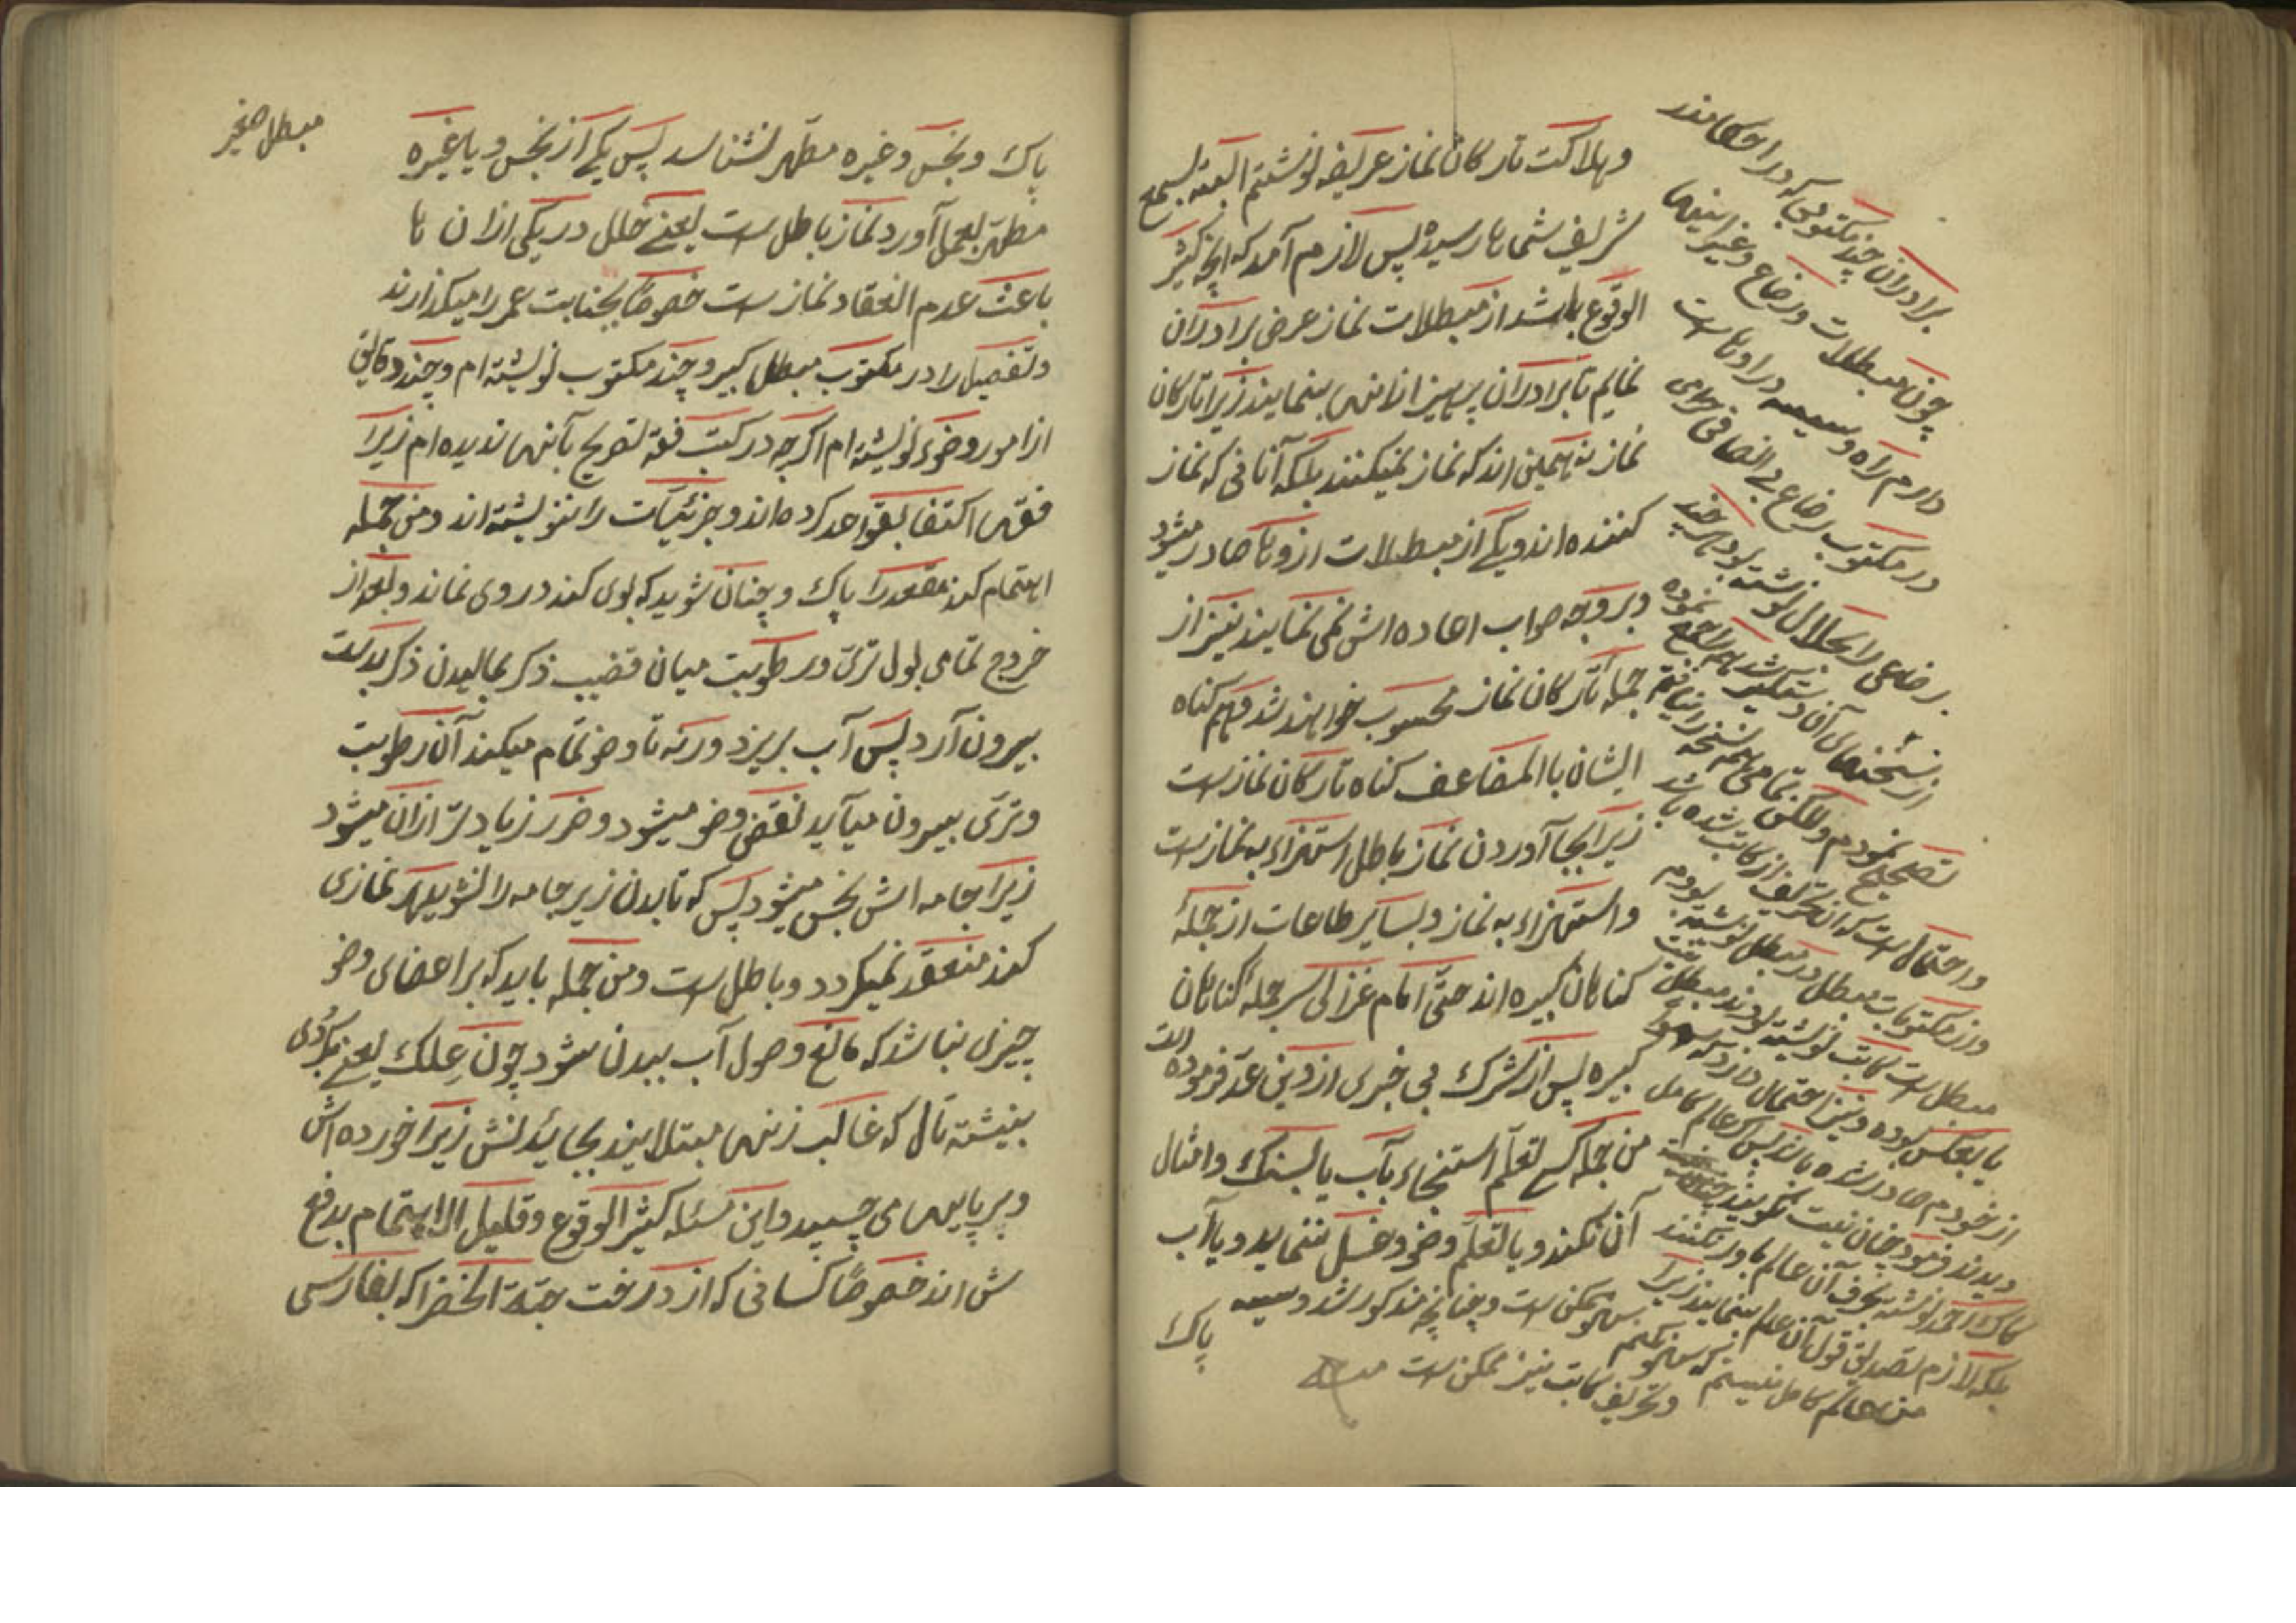 وهلاکت تارکان نماز عریضه نوشتم البته بسمع
شریف شماها رسیده پس لازم آمد که آنچه کثیر
الوقوع باشد از مبطلات نماز عرض برادران
نمایم تا برادران پرهیز از آنها بنمایند زیرا تارکان
نماز نه همین اند که نماز نمیکنند بلکه آنانی که نماز
کننده اند و یکی از مبطلات از وها صادر میشود
و بر وجه صواب اعاده اش نمی نمایند نیز از
جمله تارکان نماز محسوب خواهند شد و هم گناه
ایشان با المضاعف گناه تارکان نماز است
زیرا بجا آوردن نماز باطل استهزاء به نماز است
و استهزاء به نماز و بسایر طاعات از جملهٔ
گناهان کبیره اند حتّی امام غزالی سر جملهٔ گناهان
کبیره پس از شرک بی خبری از دین عدّ فرموده است
من جمله کسی تعلّم استنجاء بآب یا بسنگ وامثال
آن نکند و یا تعلّم وضو و غسل ننماید و یا آب
پاک
برادران چند مکتوبی که در احکامند
چون مبطلات و رضاع و غیر اینها
دارم راه و در اوهاست
در مکتوب رضاع بی انصافی
رضاعی را بحلال نوشته بود
از نسخهای آن دستگیر شد نموده
تصحیح نمودم ولکن تمامی نسخه را نیافتم
و احتمال است که از تحریف کاتب شده باشد
و در مکتوبات مبطل در مبطل نوشته بودم
مبطل است کاتب نوشته بودند مبطل نیست
یا بعکس بوده و نیز احتمال دارد که سهو
از خودم صادر شده باشد پس اگر عالم کامل
دیدند فرمود چنان نیست نگویند
کاک احمد نوشته بحرف آن عالم باور نکنند
بلکه لازم تصدیق قول آن عالم بنمایند زیرا
من عالم کامل نیستم که سهو نکنم
سهو ممکن است و چنانچه مذکور شد
و تحریف کاتب نیز ممکن است
مبطل صغیر
پاک ونجس وغیره مطهّر نشناسد پس یکی از نجس و یا غیره
مطهّر بعمل آورد نماز باطل است یعنی خلل در یکی از ان ها
باعث عدم انعقاد نماز است خصوصًا بجنابت عمر را میگذارند
وتفصیل را در مکتوب مبطل کبیر و چند مکتوب نوشته ام و چند دقایق
از امور وضوء نوشته ام اگرچه در کتب فقه تصریح بآنها ندیده ام زیرا
فقها اکتفا بقواعد کرده اند و جزئیّات را ننوشته اند و من جمله
اهتمام کند مقعد را پاک و چنان شوید که بوی کند در وی نماند و بعد از
خروج تمامی بول تری و رطوبت میان قضیب ذکر بمالیدن ذکر بدست
بیرون آرد پس آب بریزد ورنه تا وضو تمام میکند آن رطوبت
و تری بیرون میآید نقض وضو میشود و ضرر زیادتر از ان میشود
زیرا جامه اش نجس میشود پس که تا بدن زیر جامه را نشوید هر نمازی
کند منعقد نمیگردد و باطل است و من جمله باید که بر اعضای وضو
چیزی نباشد که مانع وصول آب ببدن شود چون عِلک یعنی بکُردی
بنیشته تال که غالب زنها مبتلایند بجائیدنش زیرا خورده اش
وبر پایها می چسپید و این مسئله کثیر الوقوع وقلیل الاهتمام بدفع
ش اند خصوصًا کسانی که از درخت حبّة الخضرا که بفارسی